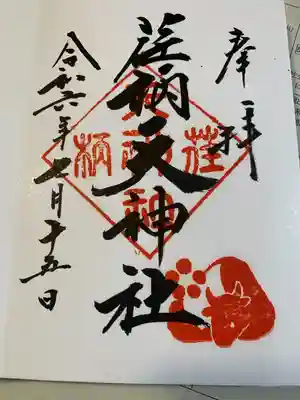 奉拝
荏柄天神社
令和六年七月十五日
荏
柄